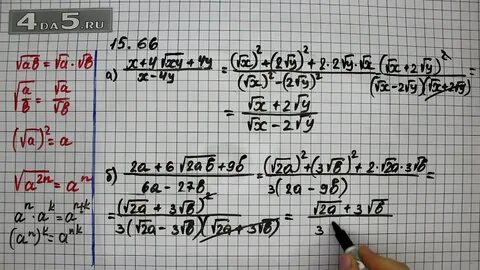 4DA5.RU
15.66
√(ab) = √a · √b
√(a/b) = √a/√b
(√a)² = a
√(a²ⁿ) = aⁿ
aⁿ · aᵏ = aⁿ⁺ᵏ
(aⁿ)ᵏ = aⁿᵏ
а) (x + 4√(xy) + 4y)/(x − 4y) = ((√x)² + (2√y)² + 2·2√y·√x)/((√x)² − (2√y)²) = (√x + 2√y)²/((√x − 2√y)(√x + 2√y)) =
= (√x + 2√y)/(√x − 2√y)
б) (2a + 6√(2ab) + 9b)/(6a − 27b) = ((√(2a))² + (3√b)² + 2·√(2a)·3√b)/(3(2a − 9b)) =
= (√(2a) + 3√b)²/(3(√(2a) − 3√b)(√(2a) + 3√b)) = (√(2a) + 3√b)/3